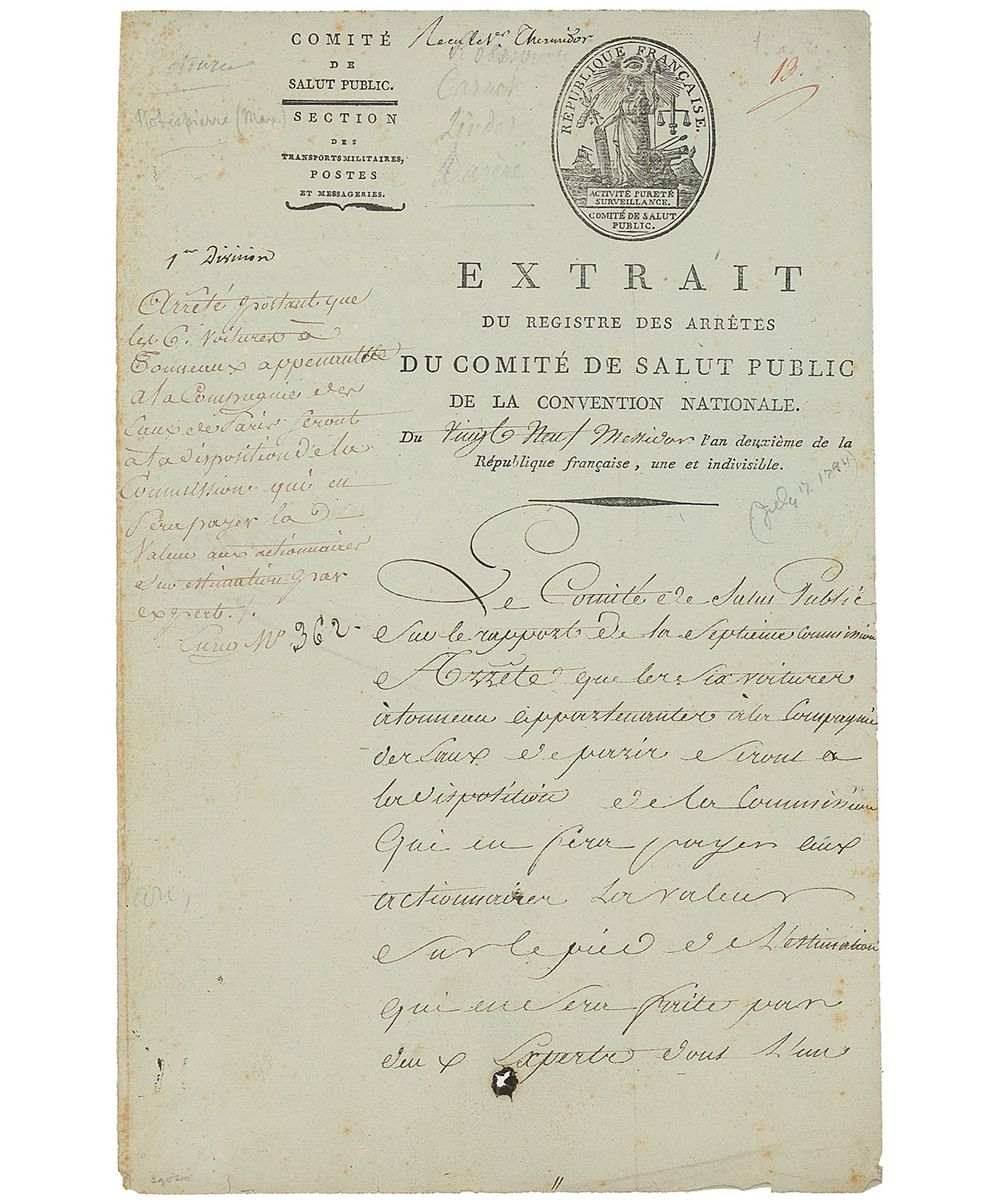 COMITÉ
DE
SALUT PUBLIC.
SECTION
DES
TRANSPORTS MILITAIRES,
POSTES
ET MESSAGERIES.
Reçu le 1er Thermidor
Robespierre
Carnot
Lindet
Barère
Robespierre (Max.)
RÉPUBLIQUE FRANÇAISE.
ACTIVITÉ PURETÉ
SURVEILLANCE.
COMITÉ DE SALUT
PUBLIC.
13.
1ere Division
Arrêté portant que
les 6. voitures à
Tonneaux appartenantes
à la Compagnie des
Eaux de Paris seront
à la disposition de la
Commission qui en
fera payer la
Valeur aux actionnaires
sur estimation par
expert./.
No 362
EXTRAIT
DU REGISTRE DES ARRÊTÉS
DU COMITÉ DE SALUT PUBLIC
DE LA CONVENTION NATIONALE.
Du Vingt Neuf Messidor l'an deuxième de la
République française, une et indivisible.
(July 17. 1794)
Le Comité de Salut Public
Sur le rapport de la Septieme Commission
Arrête que les Six voitures
à tonneau appartenantes à la Compagnie
des Eaux de paris Seront a
la disposition de la Commission
Qui en fera payer aux
actionnaires La valeur
Sur le pied de L'estimation
qui en Sera faite par
deux Experts dont L'un
39020